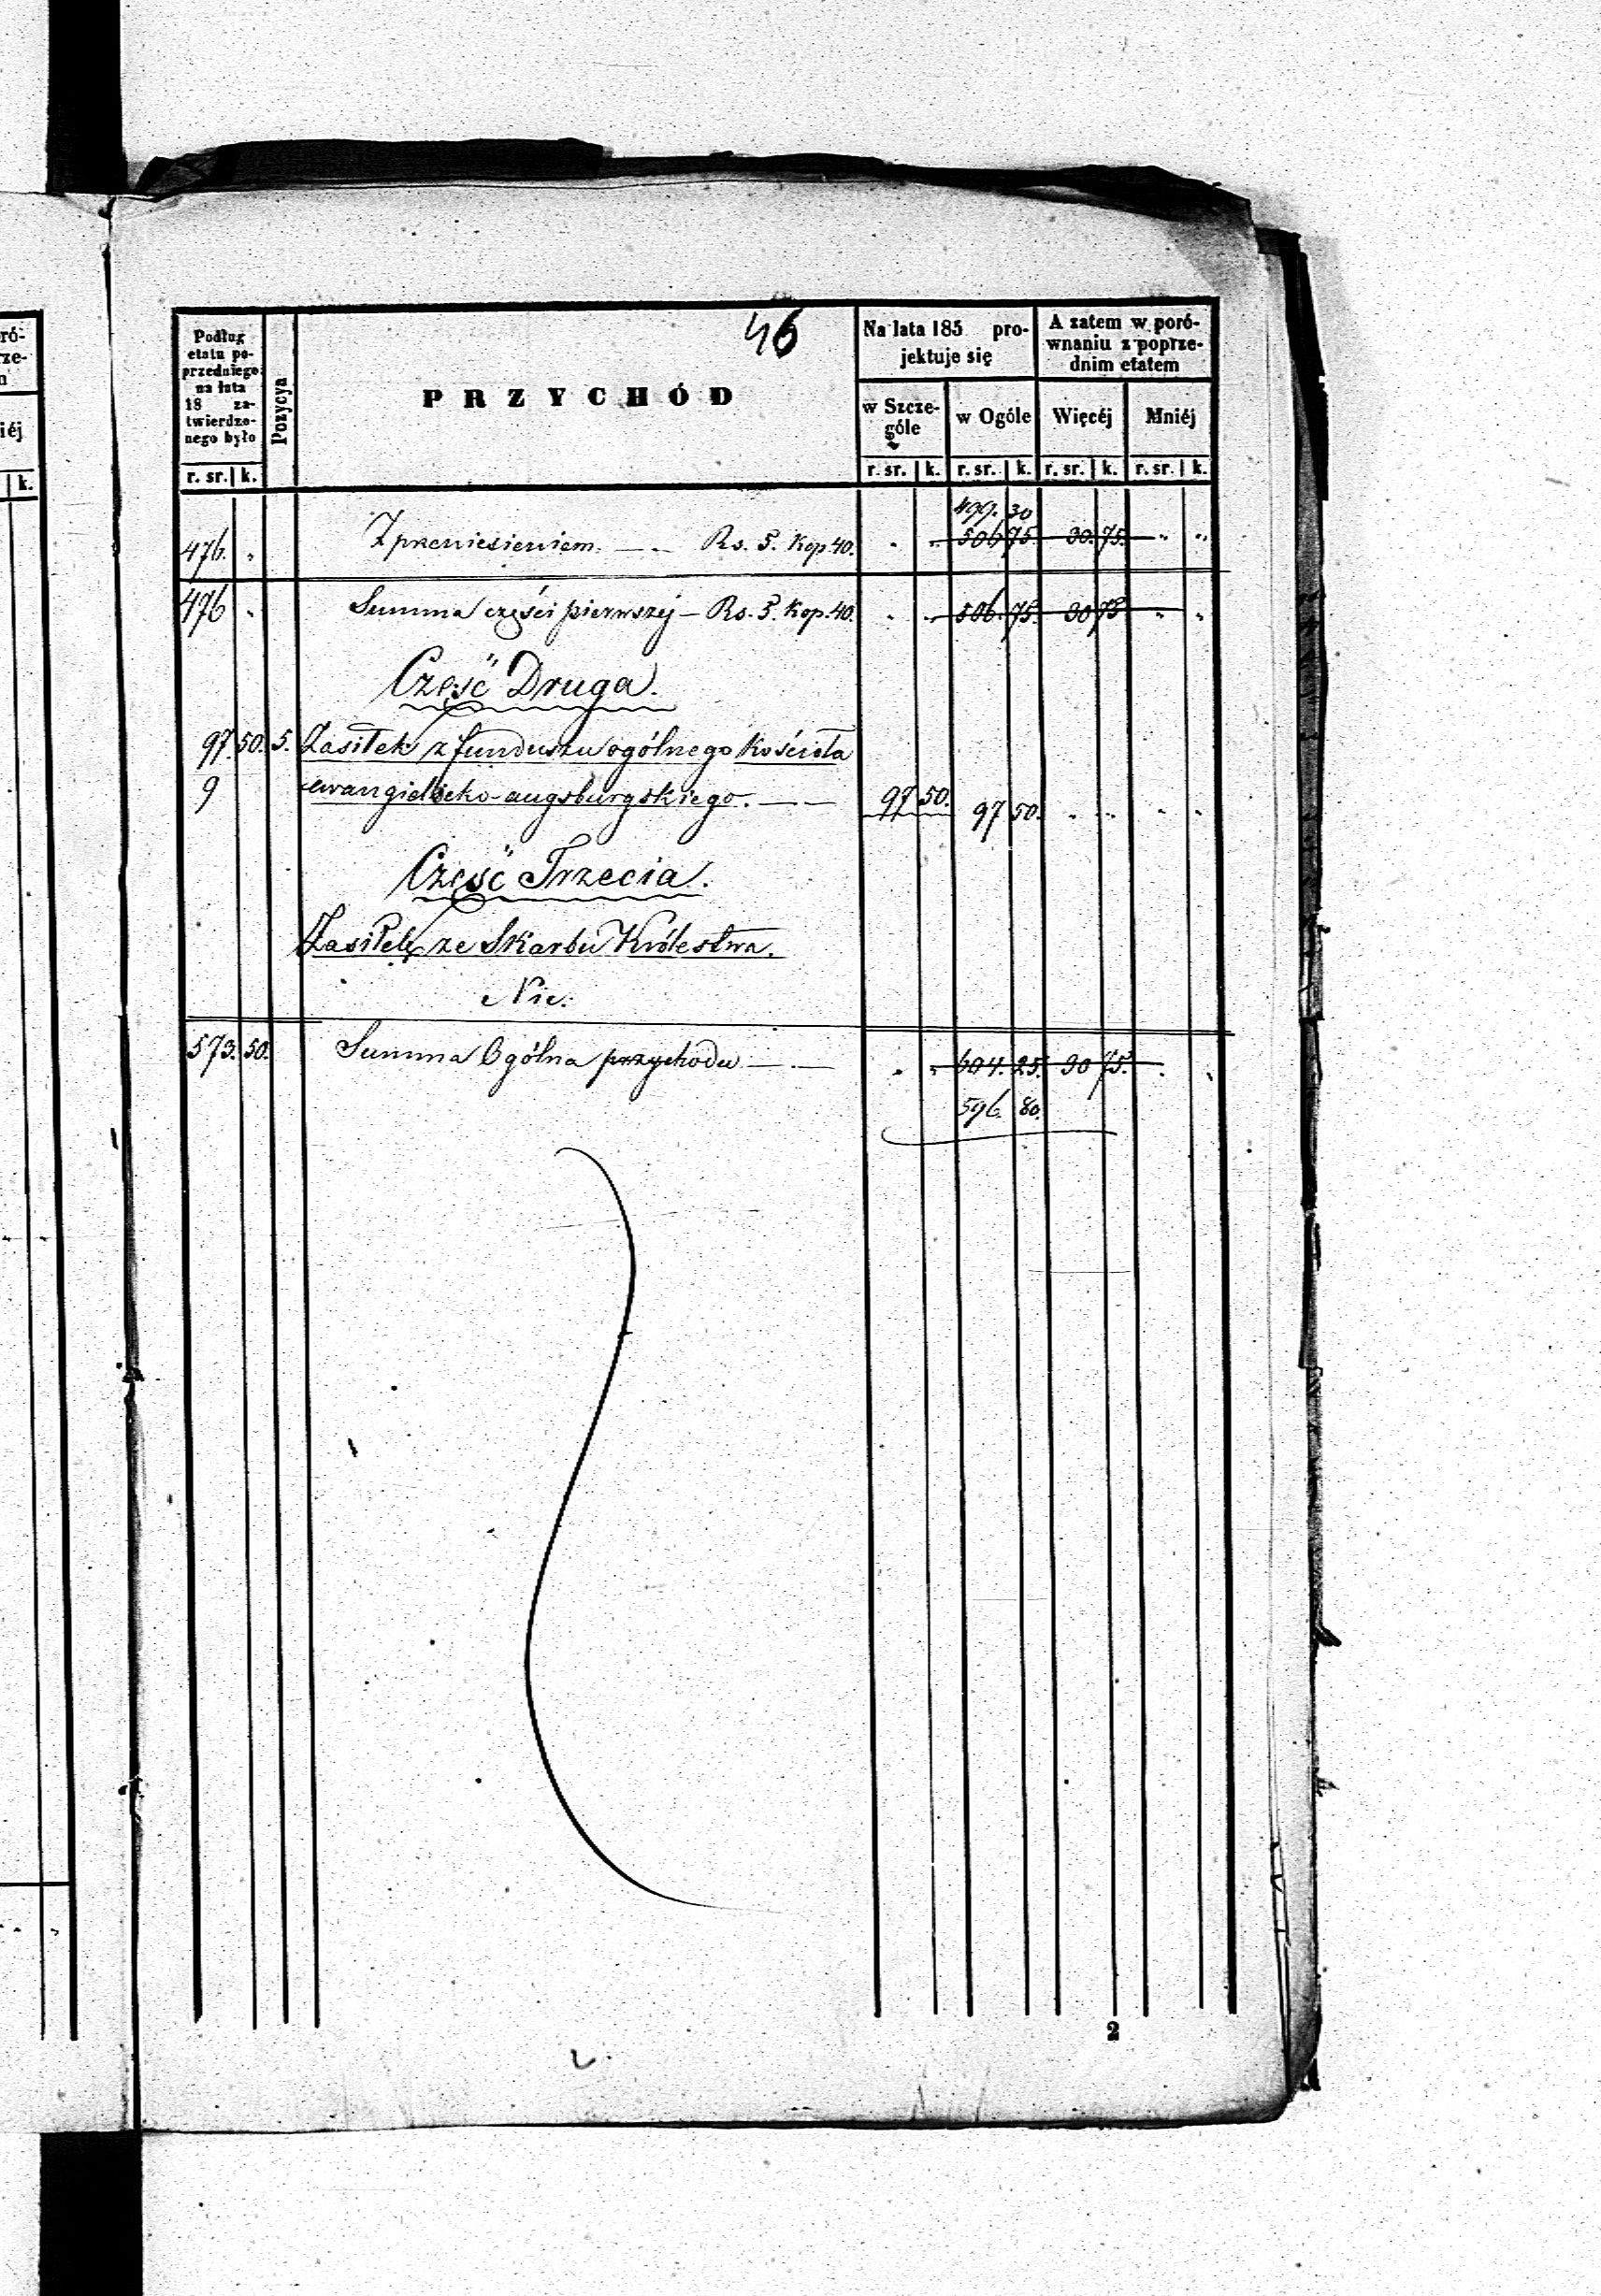 ró-
rze-
n
iéj
k.
46
Podług etatu po-
przedniego
na lata
18 za-
twierdzo-
nego było
Pozycya
PRZYCHÓD
Na lata 185 pro-
jektuje się
A zatem w poró-
wnaniu z poprze-
dnim etatem
w Szcze-
góle
w Ogóle
Więcéj
Mniéj
r. sr. k.
r. sr. k. r. sr. k. r. sr. k. r. sr. k.
499. 30
476. " Z przeniesieniem. — Rs. 5. Kop. 40. " " 506 75. 30. 75. " "
476 " Summa części pierwszéj — Rs. 5. Kop. 40. " " 506. 75. 30 75 " "
Część Druga.
97. 50. 5. Zasiłek z funduszu ogólnego Kościoła
9 ewangielicko-augsburgskiego. — — 97 50. 97 50. " " " "
Część Trzecia.
Zasiłek ze Skarbu Królestwa.
Nic.
573. 50. Summa Ogólna przychodu — — " " 604. 25. 30 75. " "
596. 80.
2